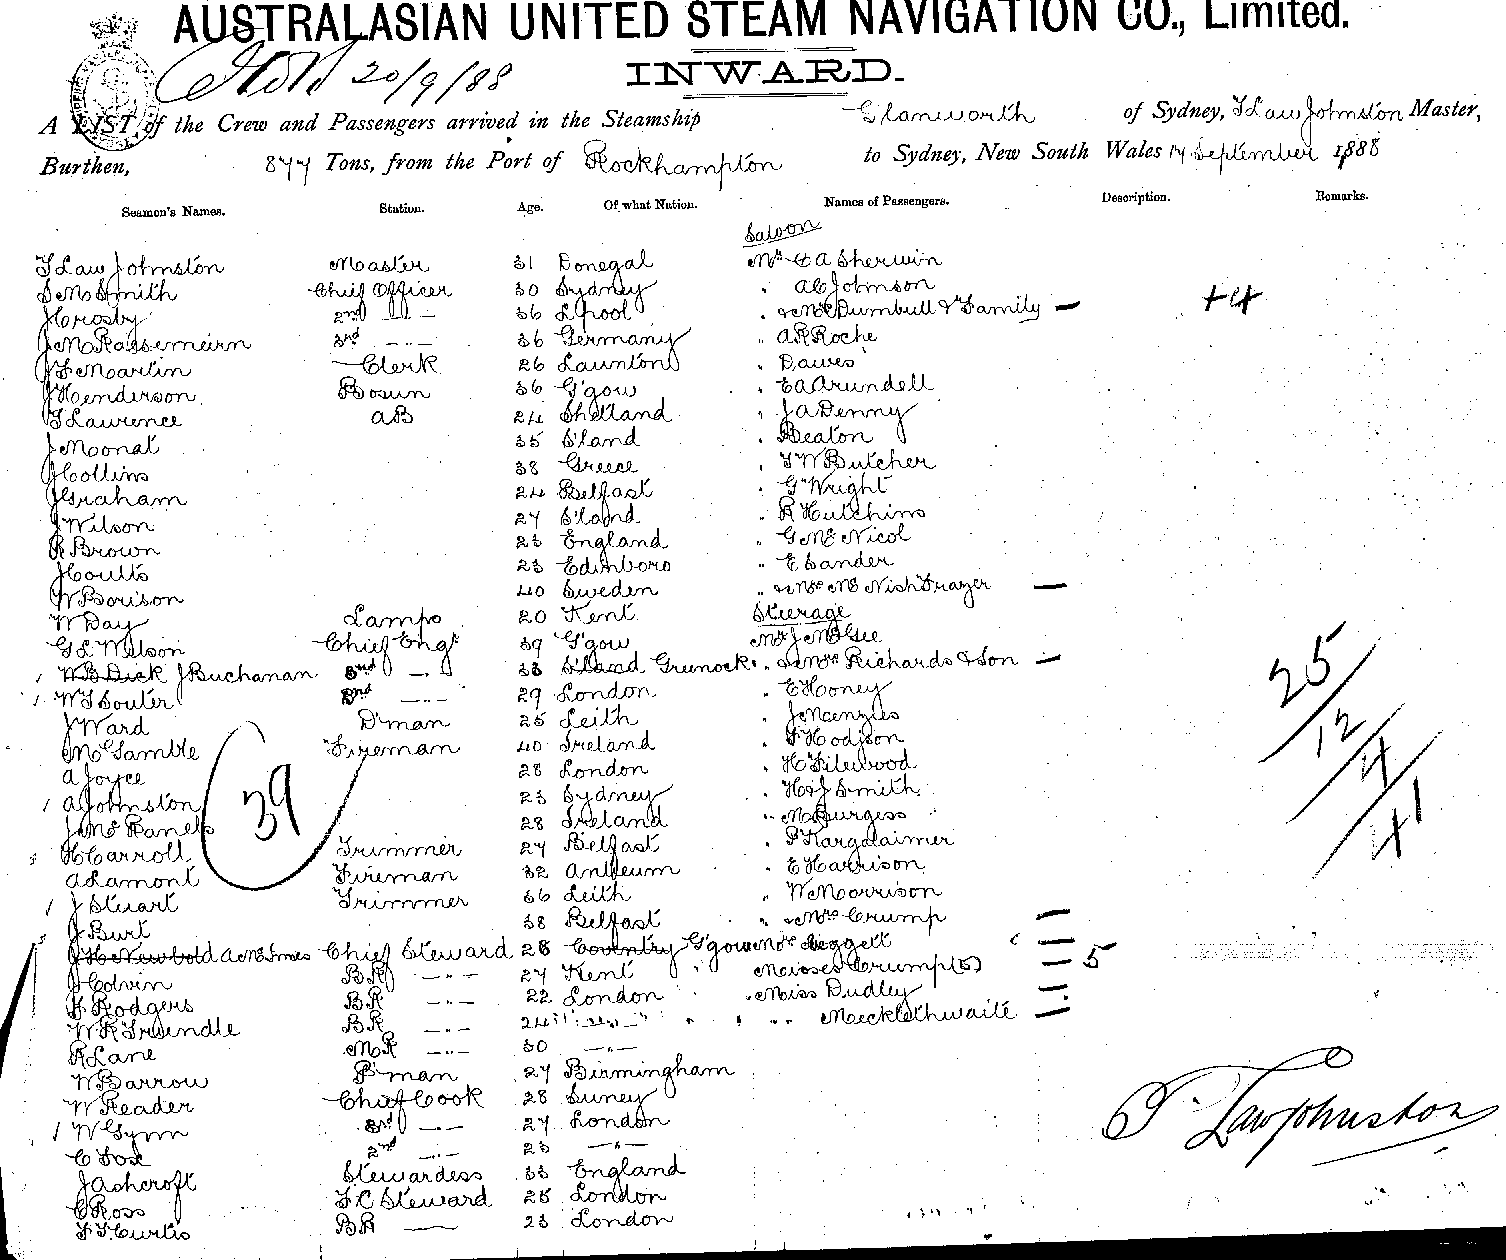 AUSTRALASIAN UNITED STEAM NAVIGATION CO., Limited.
20/9/88
INWARD.
A LIST of the Crew and Passengers arrived in the Steamship Glanworth of Sydney, T Law Johnston Master,
Burthen, 877 Tons, from the Port of Rockhampton to Sydney, New South Wales 17 September 1888
Seamen's Names. Station. Age. Of what Nation. Names of Passengers. Description. Remarks.
Saloon
T Law Johnston Master 31 Donegal Mr & A Sherwin
S McSmith Chief Officer 30 Sydney " A C Johnson
J Crosby 2nd -"- 36 L'pool " & Mrs Dumbull & Family — +4
3rd -"- 36 Germany " A R Roche
J F Martin Clerk 26 Launton " Dawes
J Henderson Bosun 36 G'gow " E A Arundell
T Lawrence AB 24 Shetland " J A Denny
J Monat 35 S'land " Beaton
J Collins 38 Greece " T W Butcher
J Graham 24 Belfast " G Wright
J Wilson 27 S'land " R Hutchins
R Brown 23 England " G Mc Nicol
J Coults 23 Edinboro " E Sander
W Borison 40 Sweden " & Mrs Mc Nish Frazer —
W Day Lamps 20 Kent Steerage
G L Wilson Chief Engr 39 G'gow Mr J McGee
W B Dick J Buchanan 2nd -"- 33 S'land Greenock " & Mrs Richards & Son —
W S Souter 3rd -"- 29 London " E Hooney
J Ward D'man 25 Leith " J Menzies
M Gamble Fireman 40 Ireland " F Hodson
A Joyce 28 London " H Filewood
A Johnston 23 Sydney " H & J Smith
28 Ireland " M Burgess
H Carroll Trimmer 27 Belfast " P Kargdaimer
A Lamont Fireman 32 " E Harrison
J Stuart Trimmer 36 Leith " W Morrison
J Burt 38 Belfast " & Mrs Crump —
J H Newbold A McInnes Chief Steward 28 Coventry G'gow Mrs Leggett —
J Colvin BR -"- 27 Kent " Crump (5) — 5
F Rodgers BR -"- 22 London " Miss Dudley —
W R Truendle BR -"- 24 -"- " Mecklethwaite —
R Lane MR -"- 30 -"-
W Barrow P'man 27 Birmingham
W Reader Chief Cook 28 Surrey
W Gynn 3rd -"- 27 London
C Fox 2nd -"- 23 -"-
J Ashcroft Stewardess 33 England
C Ross F C Steward 25 London
F T Curtis BR — 23 London
39
25
12
4
41
T. Law Johnston